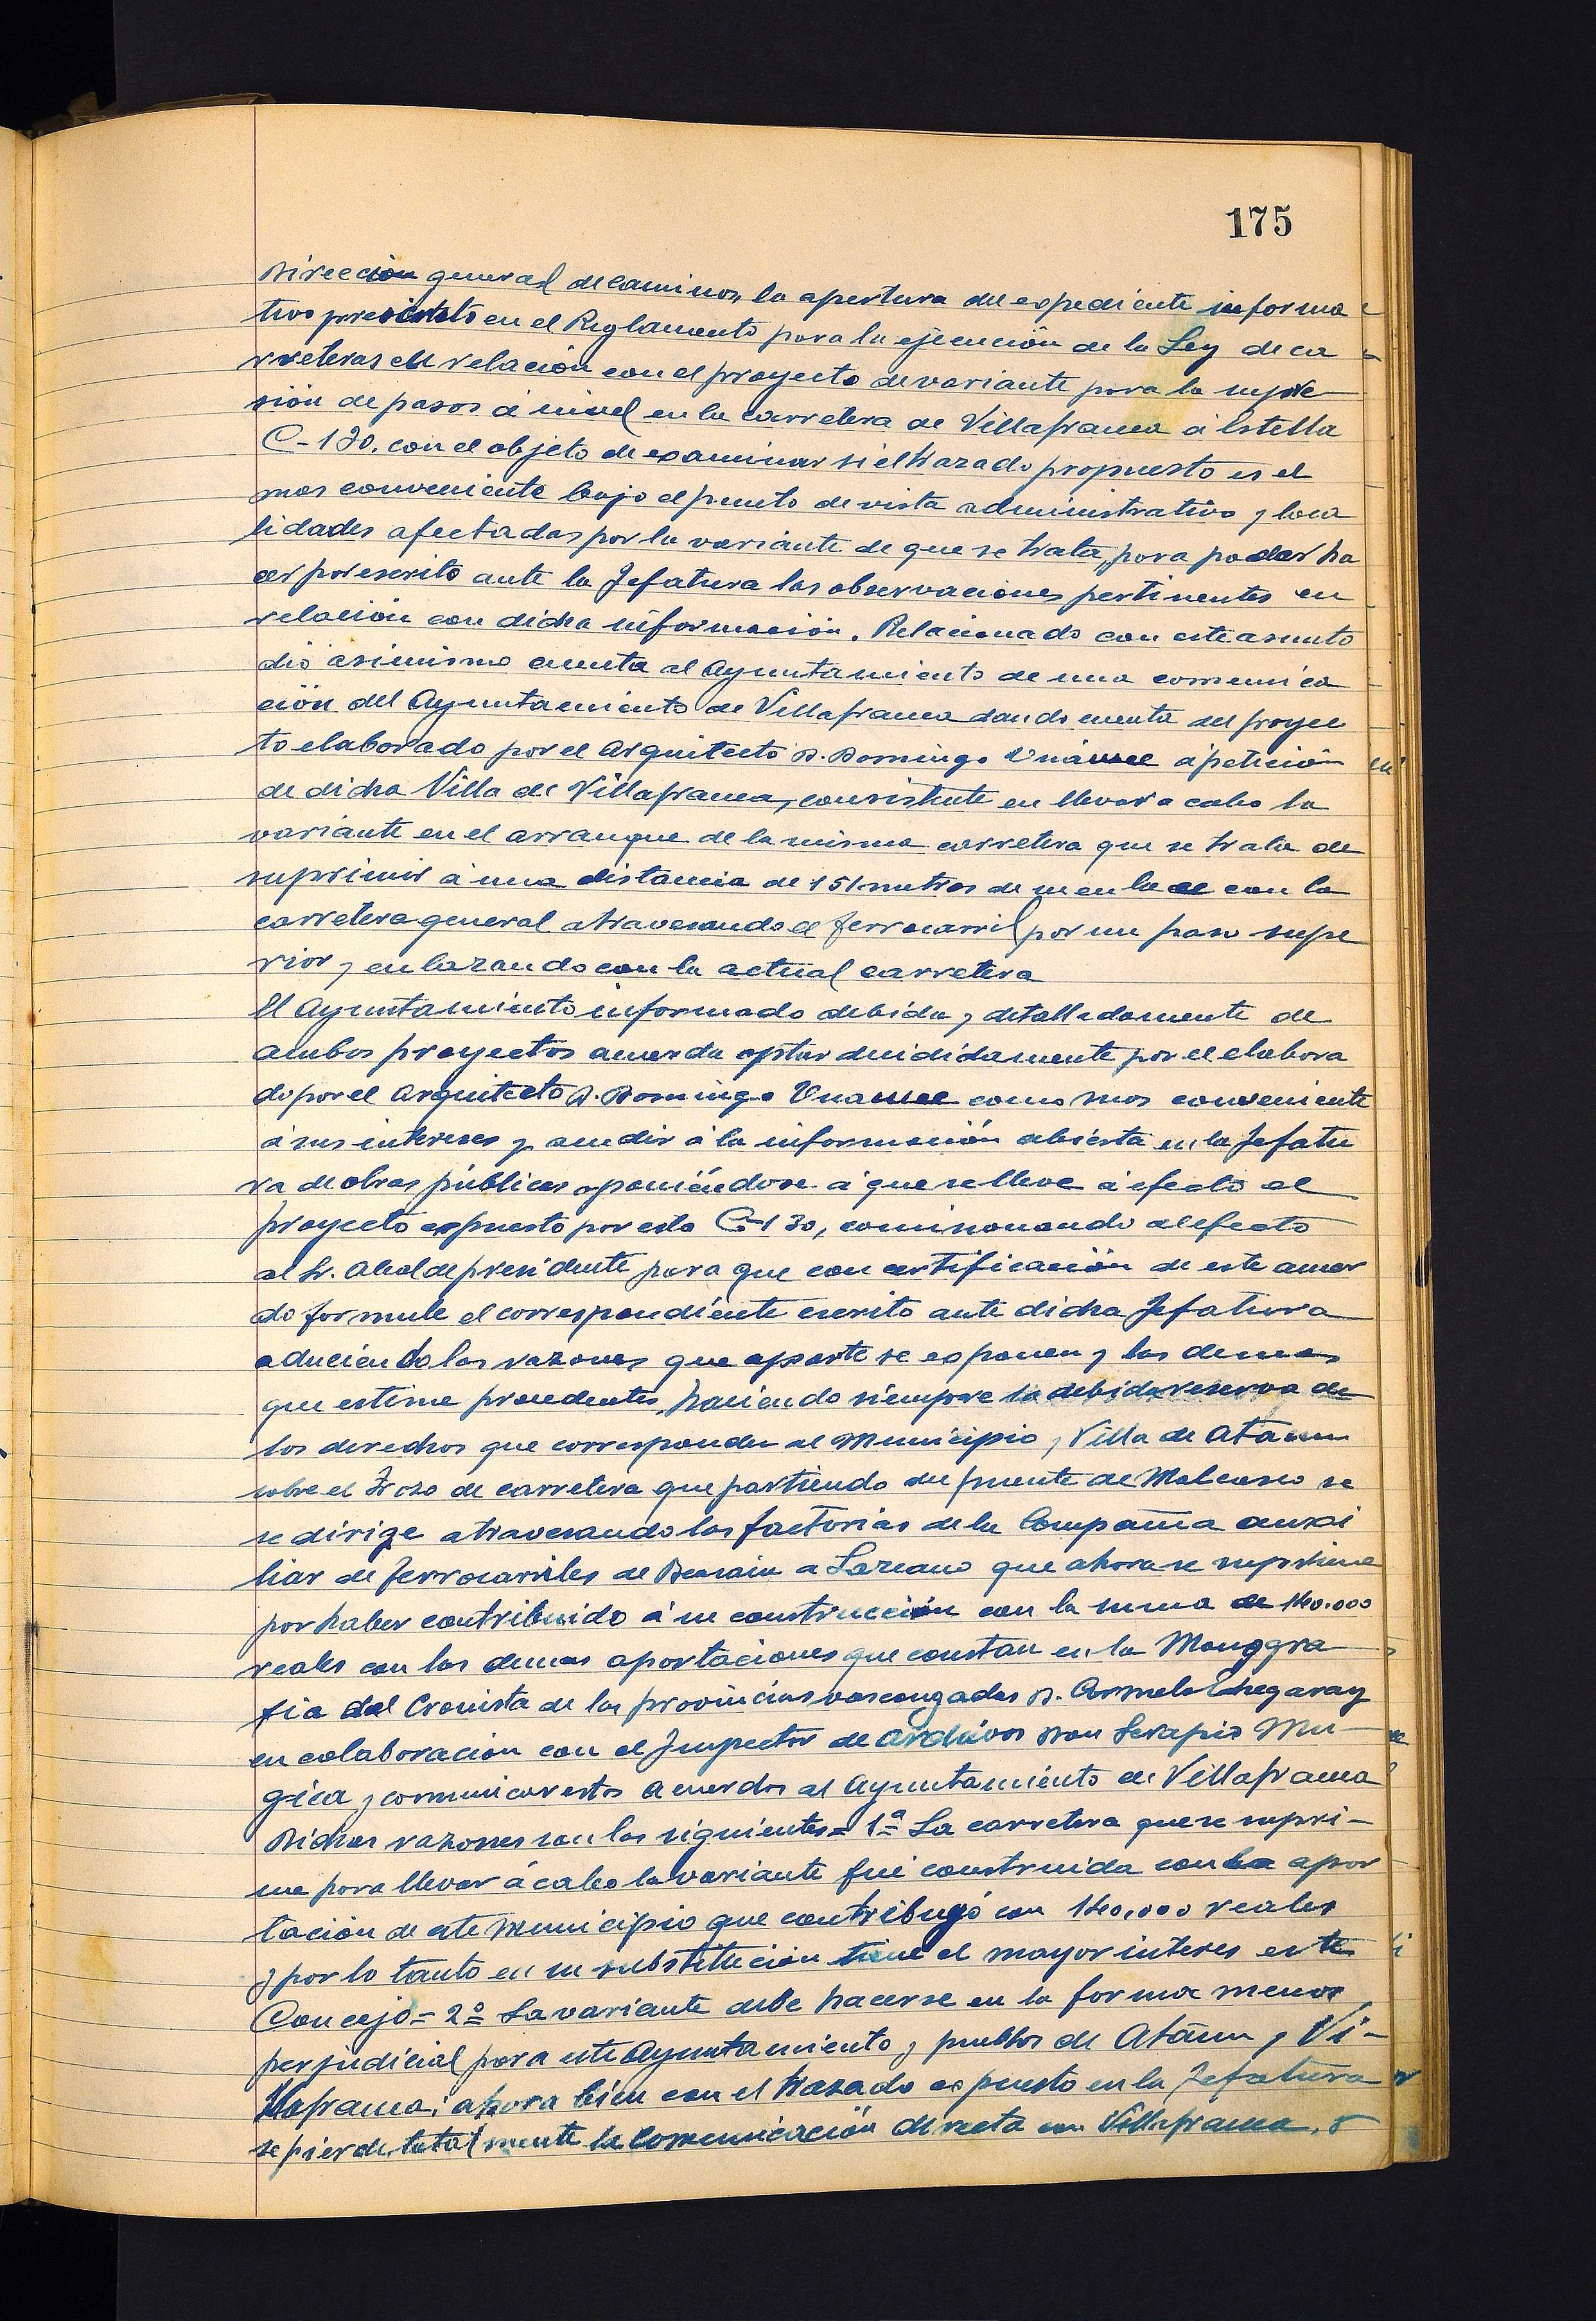 175
Direccion general de Caminos, la apertura del expediente informa
tivo previsto en el Reglamento para la ejecución de la Ley de ca
rreteras en relación con el proyecto de variante para la supre
sión de pasos á nivel en la carretera de Villafranca á Estella
C-130. con el objeto de examinar si el trazado propuesto es el
mas conveniente bajo el punto de vista administrativo y loca
lidades afectadas por la variante de que se trata, para poder ha
cer por escrito ante la Jefatura las observaciones pertinentes en
relación con dicha información. Relacionado con este asunto
dió asimismo cuenta al Ayuntamiento de una comunica
ción del Ayuntamiento de Villafranca dando cuenta del proyec
to elaborado por el Arquitecto D. Domingo Unanue á petición
de dicha Villa de Villafranca, consistente en llevar a cabo la
variante en el arranque de la misma carretera que se trata de
suprimir á una distancia de 151 metros de su enlace con la
carretera general atravesando el ferrocarril por un paso supe
rior y enlazando con la actual carretera
El Ayuntamiento informado debida y detalladamente de
ambos proyectos acuerda optar decididamente por el elabora
do por el Arquitecto D. Domingo Unanue como mas conveniente
á sus intereses y acudir á la información abierta en la Jefatu
ra de obras públicas oponiéndose á que se lleve á efecto el
proyecto expuesto por esta C-130, comisionando al efecto
al Sr. Alcalde presidente para que con certificación de este acuer
do formule el correspondiente escrito ante dicha Jefatura
aduciendo las razones que aparte se exponen y las demas
que estime procedentes, haciendo siempre la debida reserva de
los derechos que corresponden al Municipio y Villa de Ataun
sobre el trozo de carretera que partiendo del puente de Malcaseo se
se dirige atravesando las factorias de la Compañia auxi
liar de ferrocarriles de Beasain a Lazcano que ahora se suprime
por haber contribuido á su construcción con la suma de 140.000
reales con las demas aportaciones que constan en la Monogra
fia del Cronista de las provincias vascongadas D. Carmelo Echegaray
en colaboracion con el Inspector de Archivos Don Serapio Mu-
gica y comunicar estos acuerdos al Ayuntamiento de Villafranca
Dichas razones son las siguientes= 1ª= La carretera que se supri-
me para llevar á cabo la variante fué construida con la apor
tación de este Municipio que contribuyó con 140.000 reales
y por lo tanto en su substitución tiene el mayor interes este
Concejo= 2º= La variante debe hacerse en la forma menos
perjudicial para este Ayuntamiento y pueblos de Ataun y Vi-
llafranca; ahora bien con el trazado expuesto en la Jefatura
se pierde totalmente la comunicación directa con Villafranca, ó